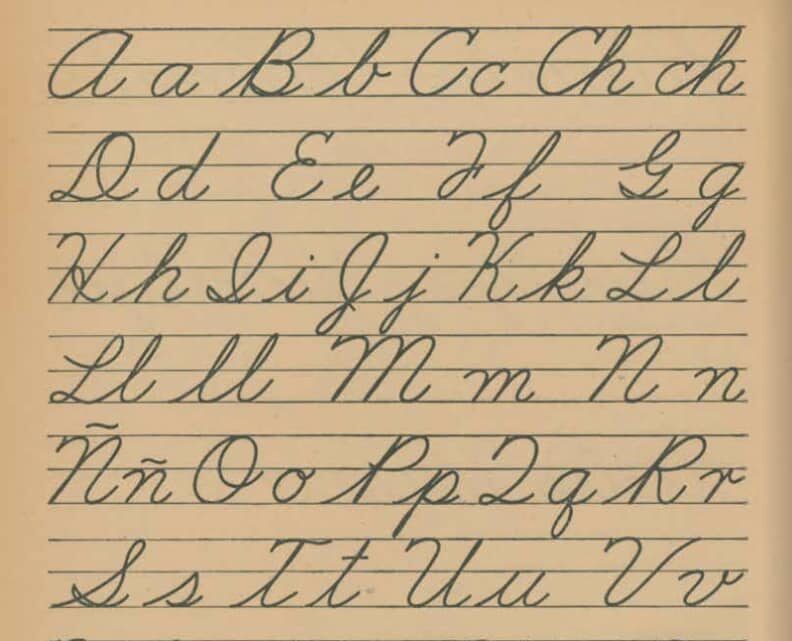 A a B b C c Ch ch
D d E e F f G g
H h I i J j K k L l
Ll ll M m N n
Ñ ñ O o P p Q q R r
S s T t U u V v